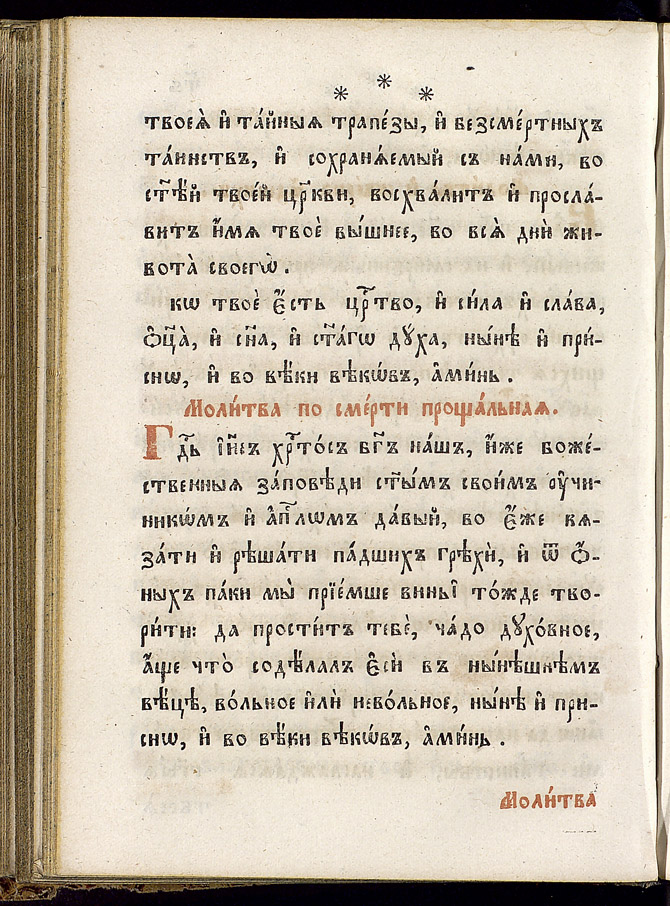 * * *
твоеѧ̀ и҆ та́йныѧ трапе́зы, и҆ безсме́ртныхъ
та́инствъ, и҆ сохранѧ́емый съ на́ми, во
ст҃ѣ́й твое́й цр҃кви, восхва́литъ и҆ просла́-
витъ и҆́мѧ твоѐ вы́шнее, во всѧ̀ днѝ жи-
вота̀ своегѡ̀.
кѡ твоѐ є҆́сть црⷭ҇тво, и҆ си́ла и҆ сла́ва,
ѻ҆ц҃а̀, и҆ сн҃а, и҆ ст҃а́гѡ дꙋ́ха, ны́нѣ и҆ при́-
снѡ, и҆ во вѣ́ки вѣкѡ́въ, а҆ми́нь.
Моли́тва по сме́рти проща́льнаѧ.
Гдⷭ҇ь і҆и҃съ хрⷭ҇то́съ бг҃ъ на́шъ, и҆́же боже́-
ственныѧ за́повѣди ст҃ы́мъ свои́мъ ᲂу҆чи-
никѡ́мъ и҆ а҆пⷭ҇лѡмъ да́вый, во є҆́же вѧ-
за́ти и҆ рѣша́ти па́дшихъ грѣхѝ, и҆ ѿ ѻ҆́-
ныхъ па́ки мы̀ прїе́мше вины̀ то́жде тво-
ри́ти: да прости́тъ тебѐ, ча́до дꙋхо́вное,
а҆́ще что̀ содѣ́лалъ є҆сѝ въ ны́нѣшнѣмъ
вѣ́цѣ, во́льное и҆лѝ нево́льное, ны́нѣ и҆ при́-
снѡ, и҆ во вѣ́ки вѣкѡ́въ, а҆ми́нь.
Моли́тва